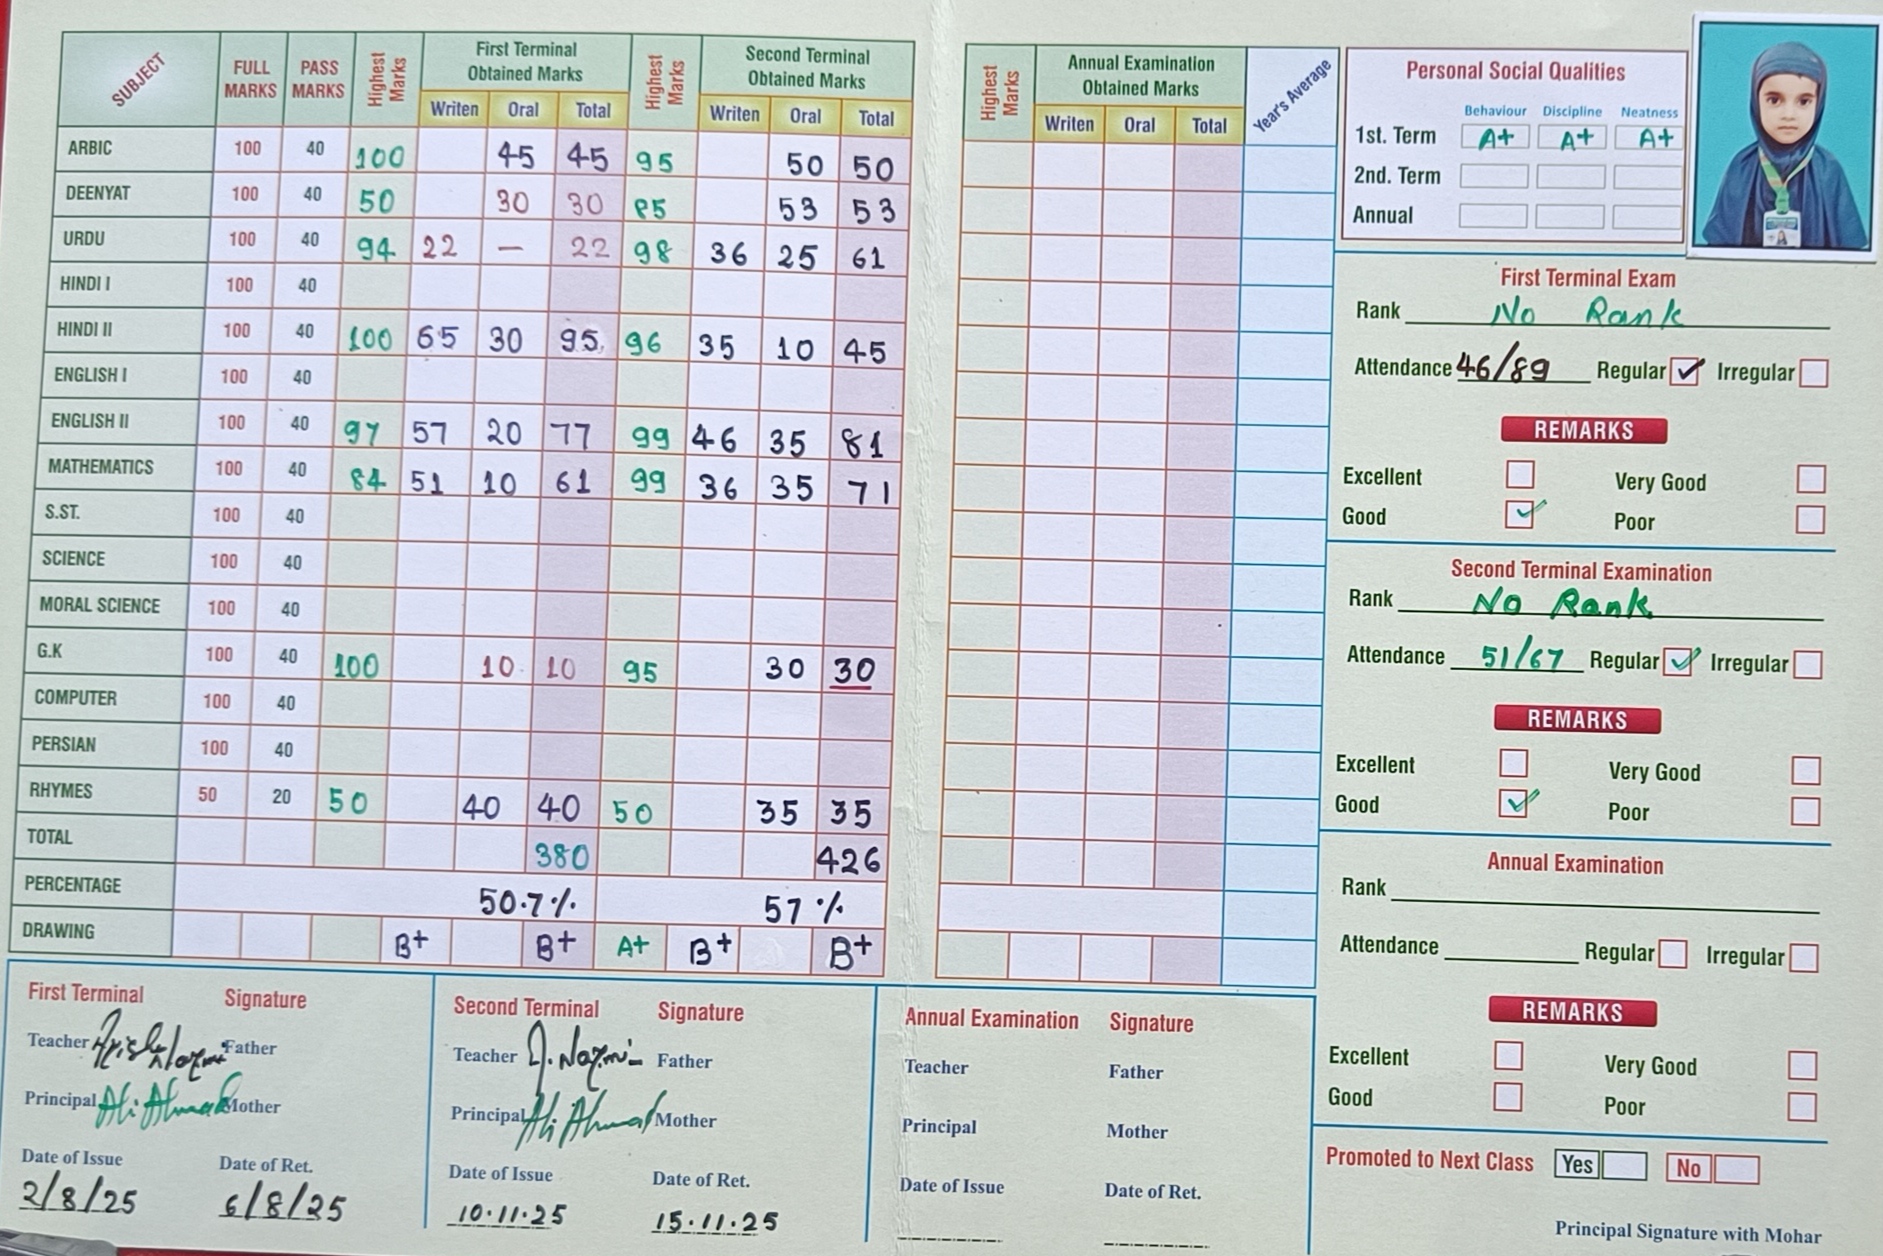 SUBJECT FULL MARKS PASS MARKS Highest Marks First Terminal Obtained Marks Highest Marks Second Terminal Obtained Marks
Writen Oral Total Writen Oral Total
ARBIC 100 40 100 45 45 95 50 50
DEENYAT 100 40 50 30 30 85 53 53
URDU 100 40 94 22 — 22 98 36 25 61
HINDI I 100 40
HINDI II 100 40 100 65 30 95 96 35 10 45
ENGLISH I 100 40
ENGLISH II 100 40 97 57 20 77 99 46 35 81
MATHEMATICS 100 40 84 51 10 61 99 36 35 71
S.ST. 100 40
SCIENCE 100 40
MORAL SCIENCE 100 40
G.K 100 40 100 10 10 95 30 30
COMPUTER 100 40
PERSIAN 100 40
RHYMES 50 20 50 40 40 50 35 35
TOTAL 380 426
PERCENTAGE 50.7% 57%
DRAWING B+ B+ A+ B+ B+
First Terminal Signature
Teacher Father
Principal Ali Ahmad Mother
Date of Issue Date of Ret.
2/8/25 6/8/25
Second Terminal Signature
Teacher Father
Principal Ali Ahmad Mother
Date of Issue Date of Ret.
10.11.25 15.11.25
Highest Marks Annual Examination Obtained Marks Year's Average
Writen Oral Total
Annual Examination Signature
Teacher Father
Principal Mother
Date of Issue Date of Ret.
Personal Social Qualities
Behaviour Discipline Neatness
1st. Term A+ A+ A+
2nd. Term
Annual
First Terminal Exam
Rank No Rank
Attendance 46/89 Regular Irregular
REMARKS
Excellent Very Good
Good Poor
Second Terminal Examination
Rank No Rank
Attendance 51/67 Regular Irregular
REMARKS
Excellent Very Good
Good Poor
Annual Examination
Rank
Attendance Regular Irregular
REMARKS
Excellent Very Good
Good Poor
Promoted to Next Class Yes No
Principal Signature with Mohar